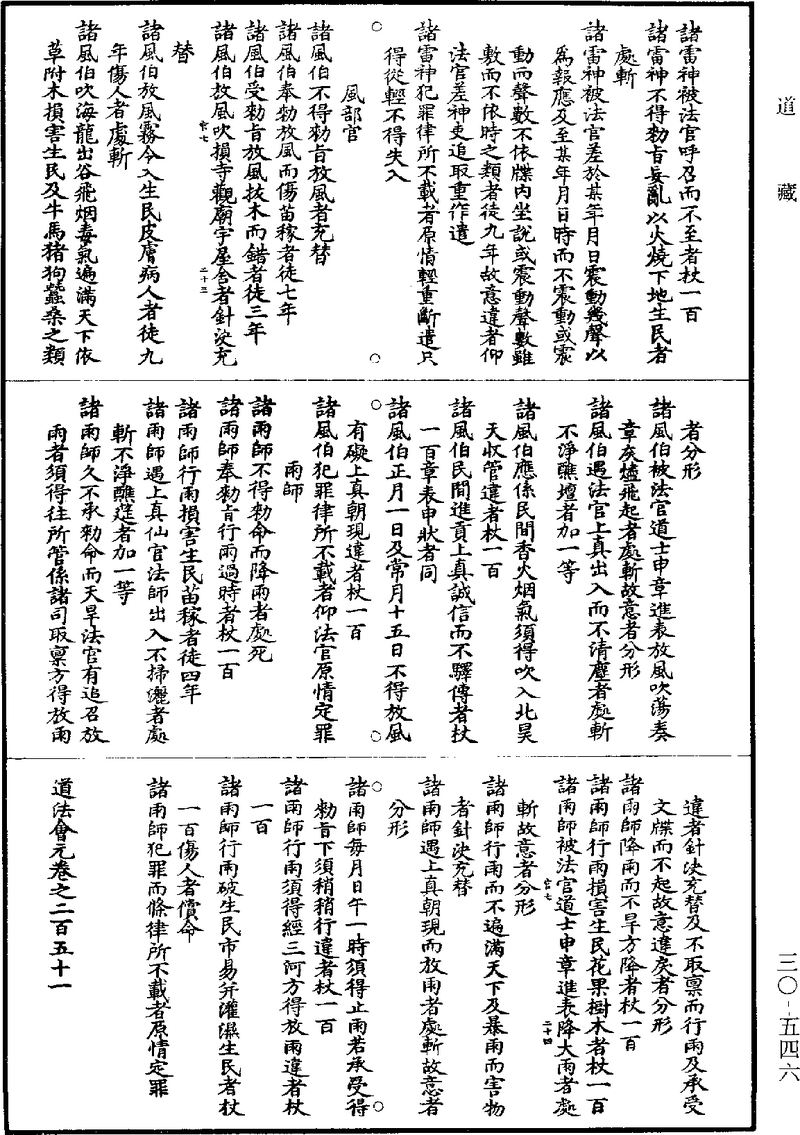 道藏
諸雷神被法官呼召而不至者杖一百
諸雷神不得勑旨妄亂以火燒下地生民者
處斬
諸雷神被法官差於某年月日震動幾聲以
為報應及至某年月日時而不震動或震
動而聲數不依牒內坐說或震動聲數雖
敷而不依時之類者徒九年故意違者仰
法官差神吏追取重作遣
諸雷神犯罪律所不載者原情輕重斷遣只
得從輕不得失入
風部官
諸風伯不得勑旨放風者充替
諸風伯奉勑放風而傷苗稼者徒七年
諸風伯受勑旨放風拔木而錯者徒三年
諸風伯放風吹損寺觀廟宇屋舍者針決充
替
諸風伯放風霧令入生民皮膚病人者徒九
年傷人者處斬
諸風伯吹海龍出谷飛烟毒氣遍滿天下依
草附木損害生民及牛馬猪狗蠶桑之類
者分形
諸風伯被法官道士申章進表放風吹蕩奏
章灰爐飛起者處斬故意者分形
諸風伯遇法官上真出入而不清塵者處斬
不淨醮壇者加一等
諸風伯應係民間香火烟氣須得吹入北昊
天收管違者杖一百
諸風伯民間進貢上真誠信而不驛傳者杖
一百章表申狀者同
諸風伯正月一日及常月十五日不得放風
有礙上真朝現違者杖一百
諸風伯犯罪律所不載者仰法官原情定罪
雨師
諸雨師不得勑命而降雨者處死
諸雨師奉勑旨行雨過時者杖一百
諸雨師行雨損害生民苗稼者徒四年
諸雨師遇上真仙官法師出入不掃灑者處
斬不淨醮筵者加一等
諸雨師久不承勑命而天旱法官有追召放
雨者須得往所管係諸司取稟方得放雨
違者針決充替及不取稟而行雨及承受
文牒而不起故意違戾者分形
諸雨師降雨而不旱方降者杖一百
諸雨師行雨損害生民花果樹木者杖一百
諸雨師被法官道士申章進表降大雨者處
斬故意者分形
諸雨師行雨而不遍滿天下及暴雨而害物
者針決充替
諸雨師遇上真朝現而放雨者處斬故意者
分形
諸雨師每月日午一時須得止雨若承受得
勑旨下須稍稍行違者杖一百
諸雨師行雨須得經三河方得放雨違者杖
一百
諸雨師行雨破生民市易并灌濕生民者杖
一百傷人者償命
諸雨師犯罪而條律所不載者原情定罪
道法會元卷之二百五十一
三〇-五四六